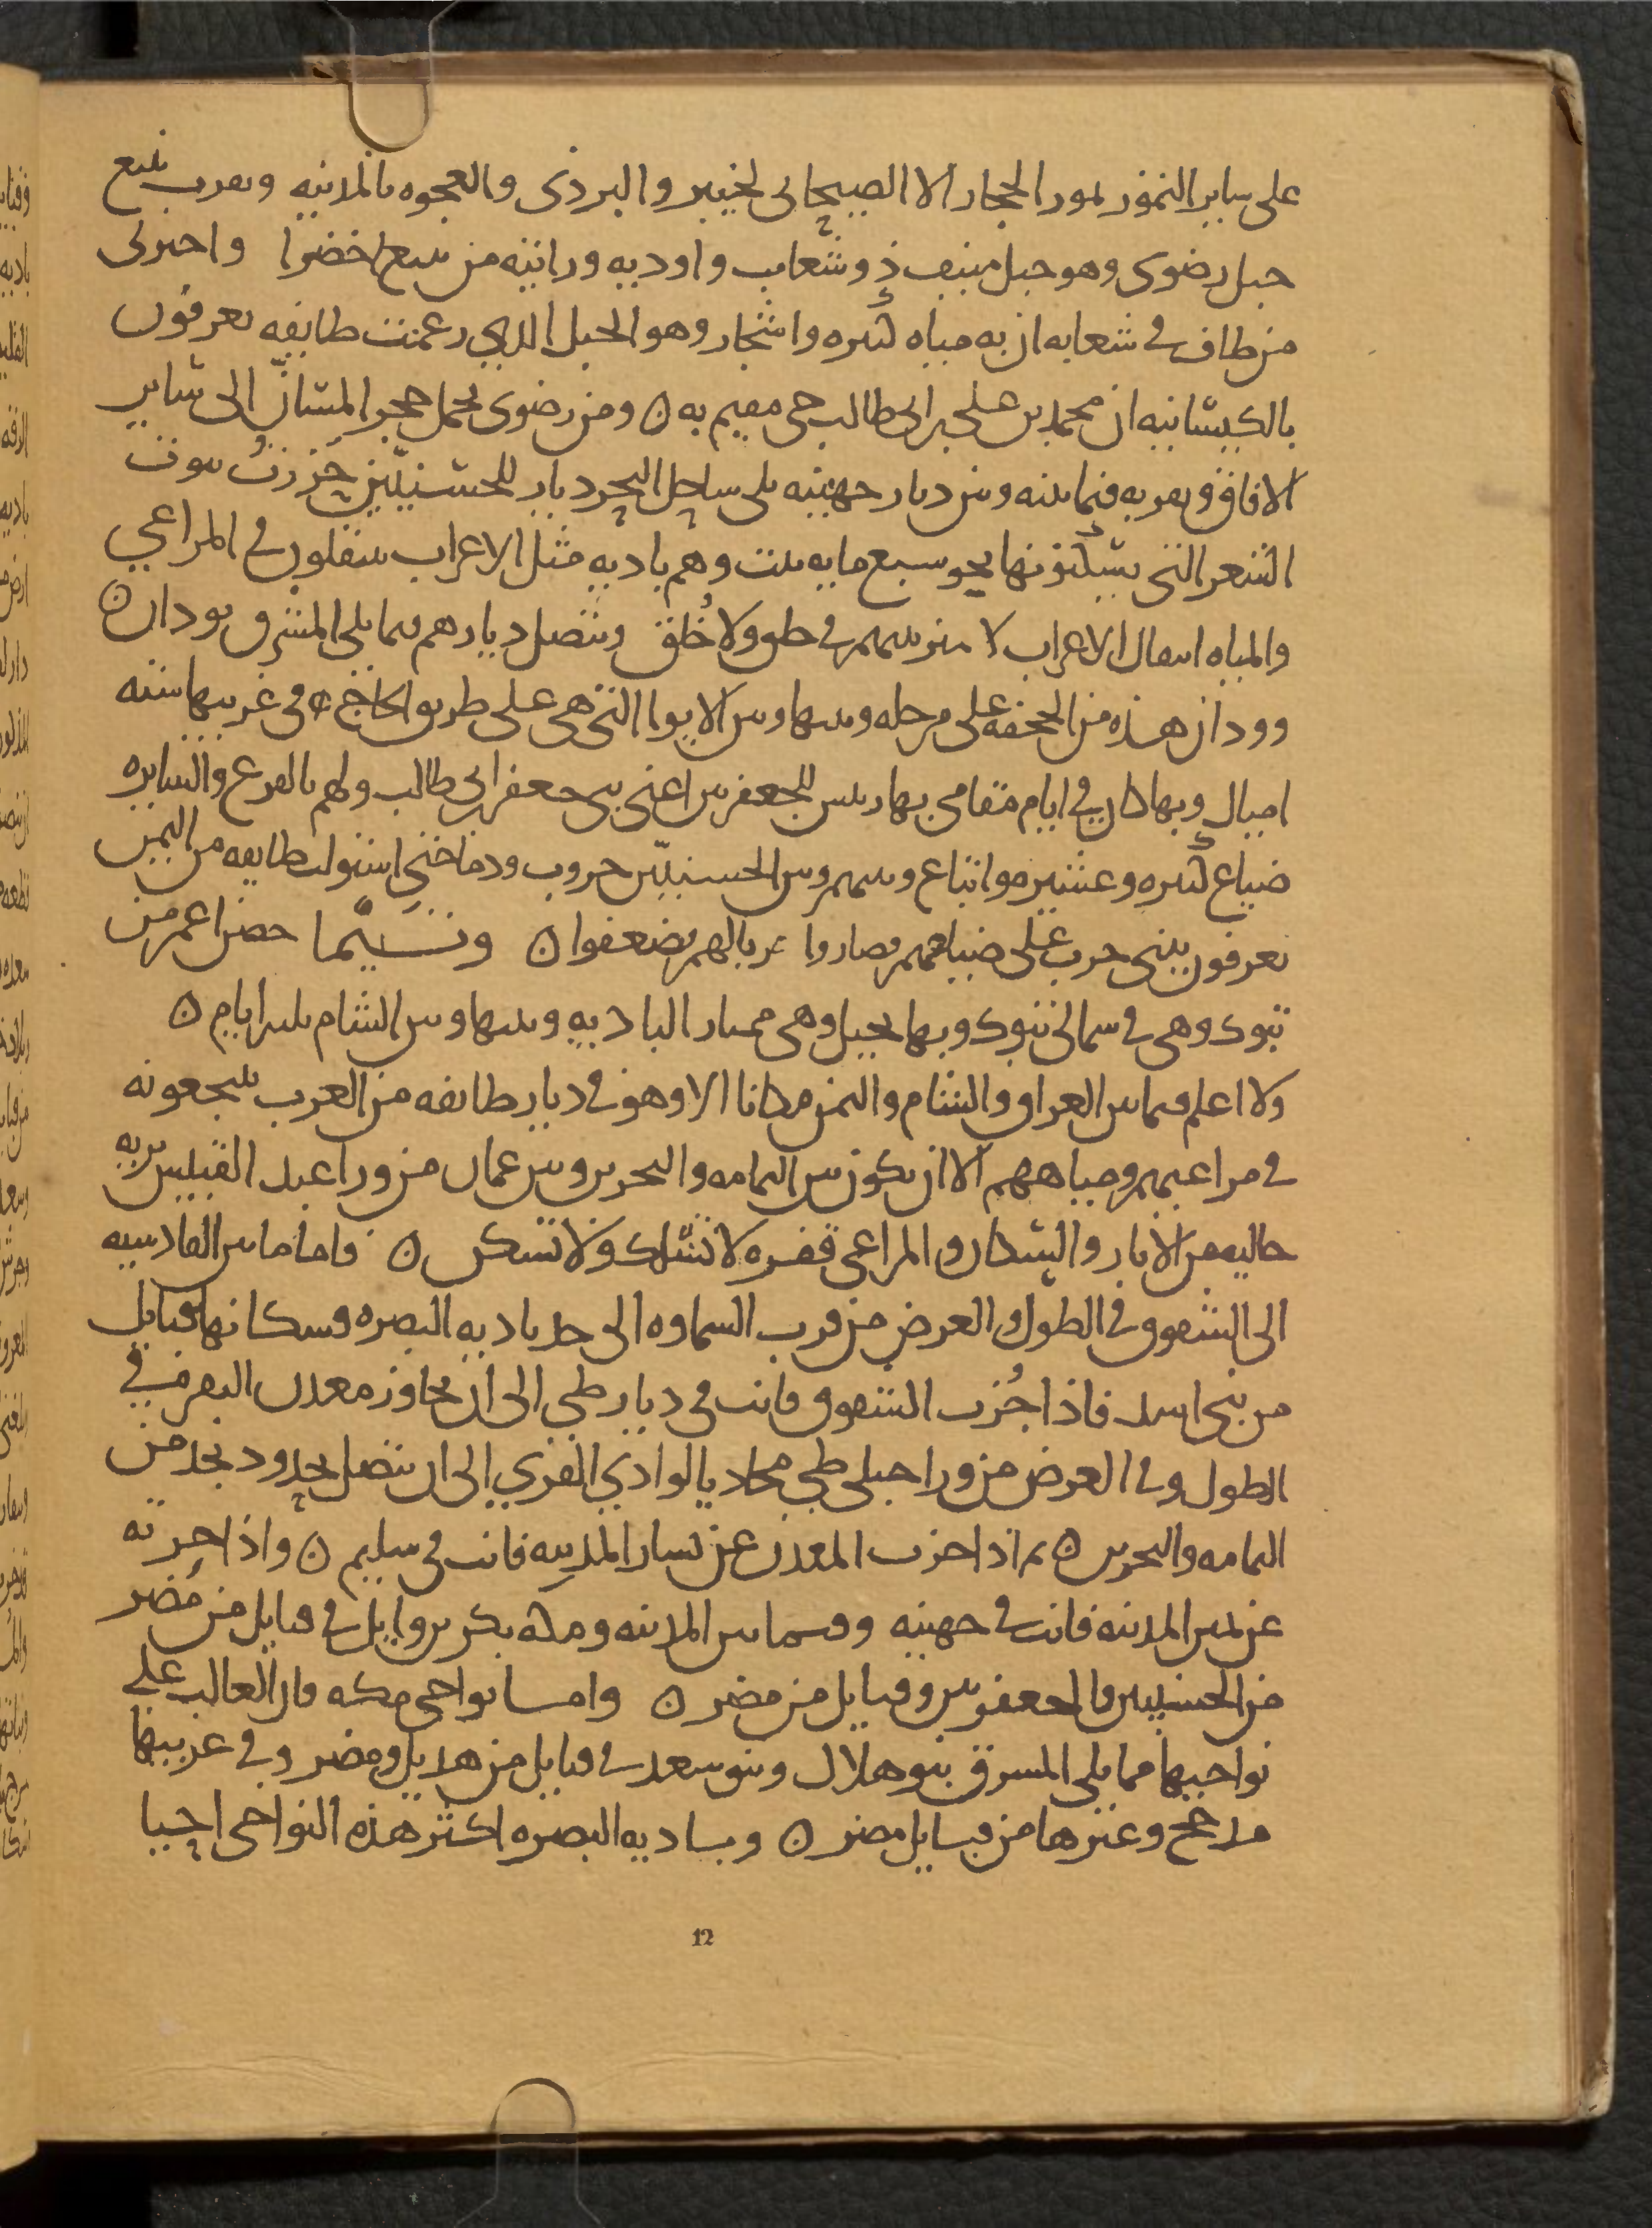 على ساير التمور بمور الحجاز الا الصيحانى بخيبر والبردى والعجوه بالمدينه وبقرب ينبع
جبل رضوى وهو جبل منيف ذو شعاب واوديه ورايته من ينبع اخضرا واخبرنى
من طاف فى شعابه ان به مياه كثيره واشجار وهو الجبل الدى زعمت طايفه يعرفون
بالكيسانيه ان محمد بن على بن ابى طالب حى مقيم به ن ومن رضوى يحمل حجر المسان الى ساير
الافاق وبقربه فيما بينه وبين ديار جهينه يلى ساحل البحر ديار للحسنيين حزرت بيوت
الشعر التى يسكنونها نحو سبع مايه بيت وهم باديه مثل الاعراب ينتقلون فى المراعى
والمياه انتقال الاعراب لا ميز بينهم فى خلق ولا خلق وتتصل ديارهم مما يلى المشرق بودان ن
وودان هذه من الجحفه على مرحله وبينها وبين الابوا التى هى على طريق الحاج فى غربيها سته
اميال وبها كان فى ايام مقامى بها رييس للجعفريين اعنى بنى جعفر ابى طالب ولهم بالفرع والسايره
ضياع كثيره وعشيره واتباع وبينهم وبين الحسنيين حروب ودما حتى استولت طايفه من اليمن
يعرفون ببنى حرب على ضياعهم فصاروا حربا لهم فضعفوا ن وتيما حصن اعمر من
تبوك وهى فى شمالى تبوك وبها نخيل وهى ممتار الباديه وبينها وبين الشام ثلثه ايام ن
ولا اعلم فيما بين العراق والشام واليمن مكانا الا وهو فى ديار طايفه من العرب ينتجعونه
فى مراعيهم ومياههم الا ان يكون بين اليمامه والبحرين وبين عمان من ورا عبد القيس بريه
خاليه من الابار والسكان والمراعى قفره لا تسلك ولا تسكن ن فاما ما بين القادسيه
الى الشقوق فى الطول والعرض من قرب السماوه الى حد باديه البصره فسكانها قبايل
من بنى اسد فاذا جزت الشقوق فانت فى ديار طى الى ان تجاوز معدن النقره فى
الطول وفى العرض من ورا جبلى طى محاديا لوادى القرى الى ان تتصل بحدود نجد من
اليمامه والبحرين ن ثم اذا جزت المعدن عن يسار المدينه فانت فى سليم ن واذا جزته
عن يمين المدينه فانت فى جهينه وفيما بين المدينه ومكه بكر بن وايل فى قبايل من مضر
من الحسنيين والجعفريين وقبايل من مضر ن واما نواحى مكه فان الغالب على
نواحيها مما يلى المشرق بنو هلال وبنو سعد فى قبايل من هذيل ومضر وفى غربيها
مدحج وغيرها من قبايل مضر ن وباديه البصره اكثر هذه النواحى احيا
12